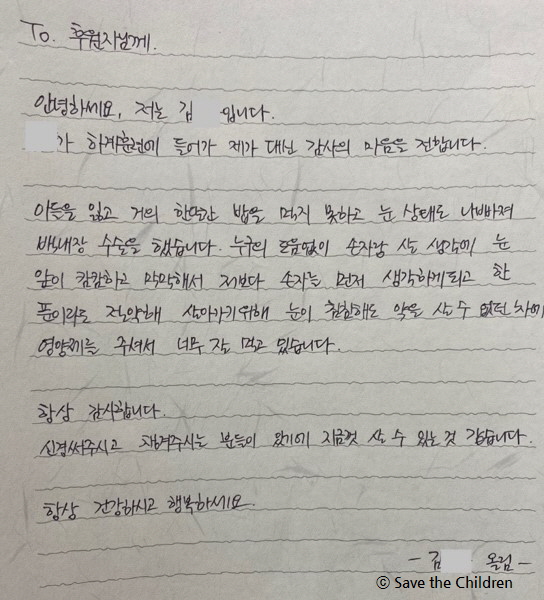 To. 후원자님께.
안녕하세요, 저는 김 입니다.
가 하계훈련에 들어가 제가 대신 감사의 마음을 전합니다.
아들을 잃고 거의 한달간 밥을 먹지 못하고 눈 상태도 나빠져
백내장 수술을 했습니다. 누구의 도움없이 손자랑 살 생각에 눈
앞이 캄캄하고 막막해서 저보다 손자를 먼저 생각하게되고 한
푼이라도 절약해 살아가기위해 눈이 침침해도 약을 살 수 없던 차에
영양제를 주셔서 너무 잘 먹고 있습니다.
항상 감사합니다.
신경써주시고 챙겨주시는 분들이 있기에 지금껏 살 수 있는 것 같습니다.
항상 건강하시고 행복하세요.
- 김 올림 -
© Save the Children